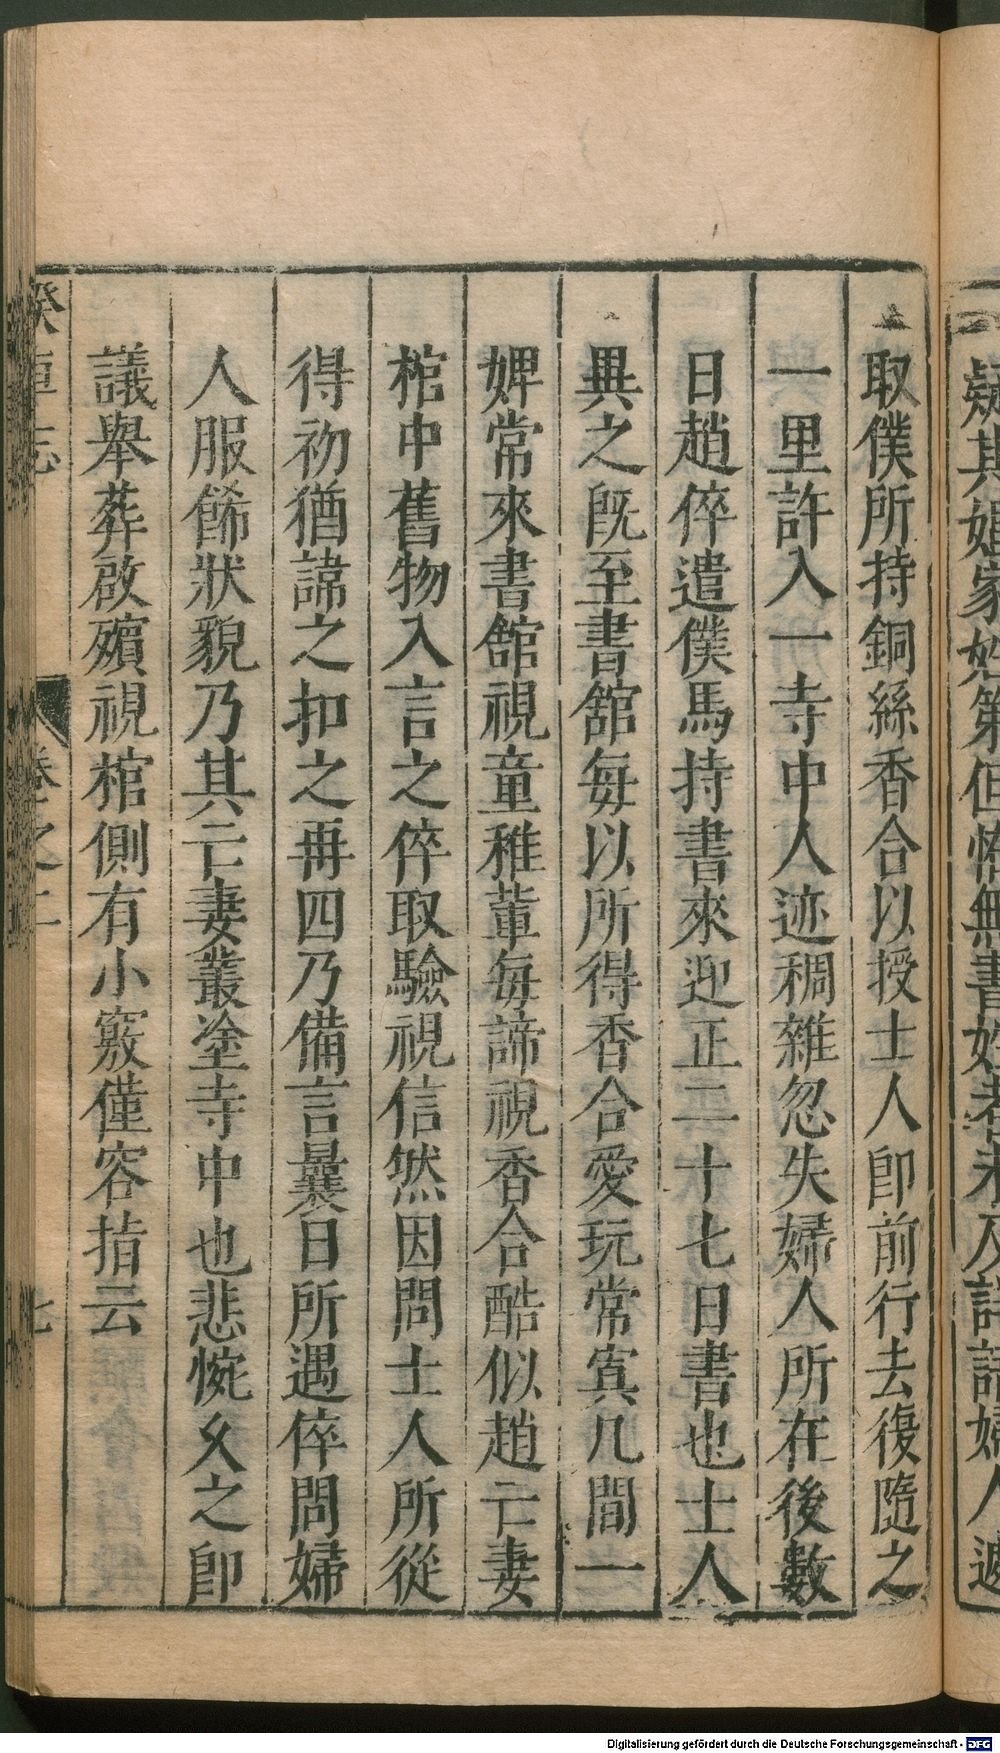 取僕所持銅絲香合以授士人卽前行去復隨之
一里許入一寺中人迹稠雜忽失婦人所在後數
日趙倅遣僕馬持書來迎正二十七日書也士人
異之旣至書館每以所得香合愛玩常寘几間一
婢常來書館視童稚輩每諦視香合酷似趙亡妻
棺中舊物入言之倅取驗視信然因問士人所從
得初猶諱之扣之再四乃備言曩日所遇倅問婦
人服餙狀貌乃其亡妻叢塗寺中也悲惋乆之卽
議舉葬啟殯視棺側有小竅僅容指云
癸車志
卷之二
七
Digitalisierung gefördert durch die Deutsche Forschungsgemeinschaft - DFG